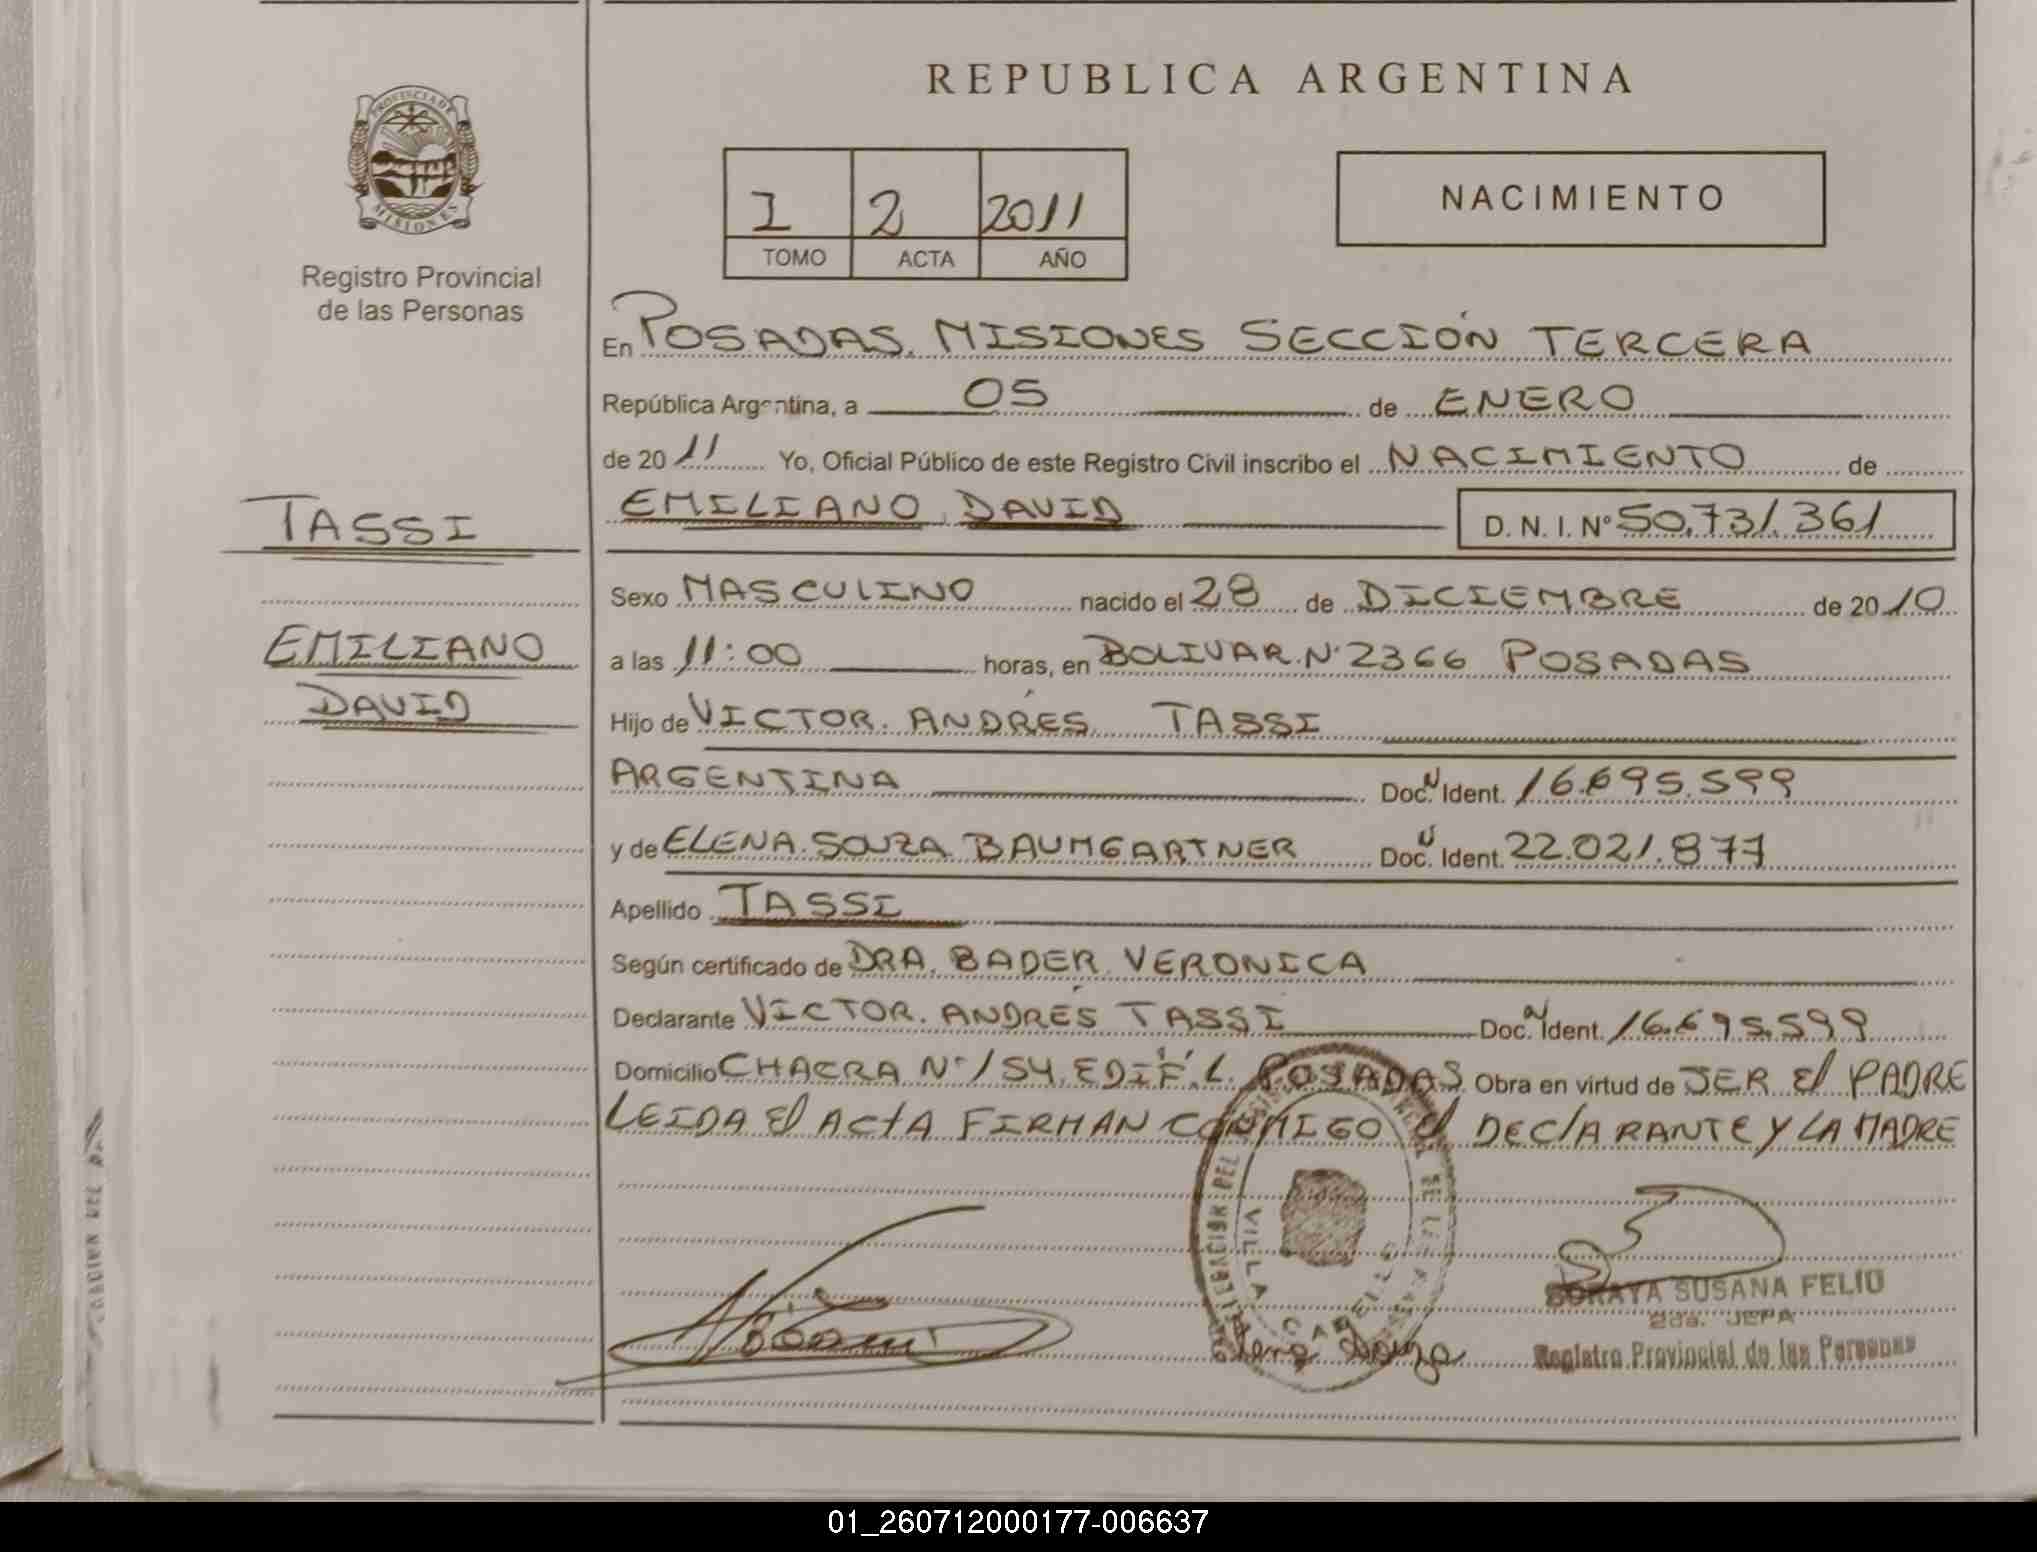 REPUBLICA ARGENTINA
PROVINCIA DE
MISIONES
Registro Provincial
de las Personas
I 2 2011
TOMO ACTA AÑO
NACIMIENTO
En POSADAS. MISIONES SECCIÓN TERCERA
República Argentina, a 05 de ENERO
de 2011 Yo, Oficial Público de este Registro Civil inscribo el NACIMIENTO de
TASSI
EMILIANO DAVID D. N. I. Nº 50.731.361
Sexo MASCULINO nacido el 28 de DICIEMBRE de 2010
EMILIANO
a las 11:00 horas, en BOLIVAR. Nº 2366 POSADAS
DAVID
Hijo de VICTOR. ANDRÉS TASSI
ARGENTINA Doc. Ident. 16.695.599
y de ELENA SOUZA BAUMGARTNER Doc. Ident. 22.021.877
Apellido TASSI
Según certificado de DRA. BADER VERONICA
Declarante VICTOR. ANDRÉS TASSI Doc. Ident. 16.695.599
Domicilio CHACRA Nº 154 EDIF. L. POSADAS Obra en virtud de SER El PADRE
LEIDA El ActA FIRMAN CONMIGO el DEClARANTE Y LA MADRE
VILLA CABELLO
SORAYA SUSANA FELIU
2da. JEFA
Registro Provincial de las Personas
01_260712000177-006637